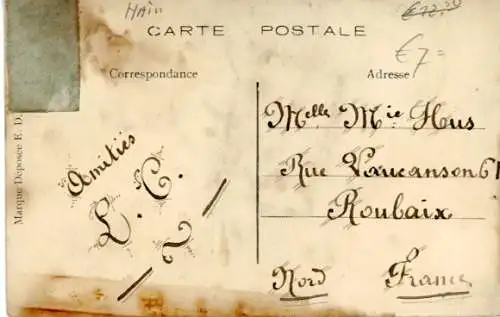 Hain
€22.50
CARTE POSTALE
€7=
Correspondance
Adresse
Marque Deposée E. D.
Amitiés
L. C.
Melle Mie Hus
Rue Vaucanson 61
Roubaix
Nord France